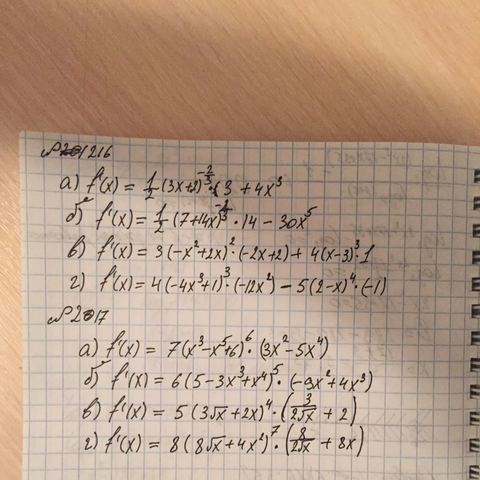 № 216
а) f'(x) = 1/2 (3x+2)^(-2/3) · 3 + 4x³
б) f'(x) = 1/2 (7+14x)^(-2/3) · 14 − 30x⁵
в) f'(x) = 3(−x²+2x)² · (−2x+2) + 4(x−3)³ · 1
г) f'(x) = 4(−4x³+1)³ · (−12x²) − 5(2−x)⁴ · (−1)
№ 217
а) f'(x) = 7(x³−x⁵+6)⁶ · (3x²−5x⁴)
б) f'(x) = 6(5−3x³+x⁴)⁵ · (−9x²+4x³)
в) f'(x) = 5(3√x+2x)⁴ · (3/(2√x) + 2)
г) f'(x) = 8(8√x+4x²)⁷ · (8/(2√x) + 8x)